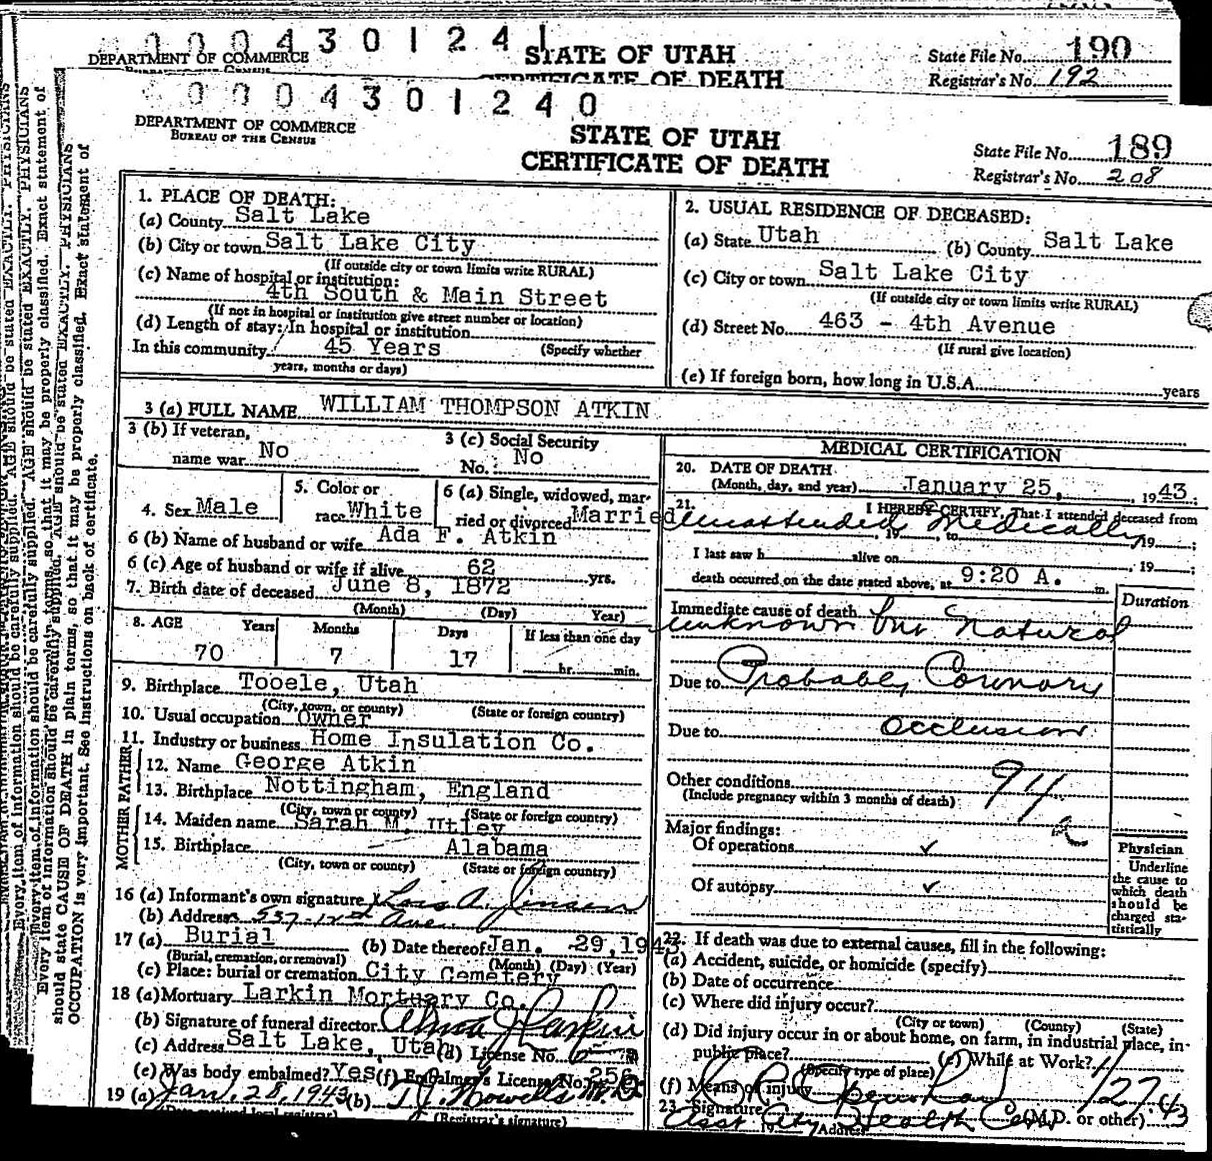 0004301241
DEPARTMENT OF COMMERCE
STATE OF UTAH
State File No. 190
CERTIFICATE OF DEATH
Registrar's No. 192
0004301240
DEPARTMENT OF COMMERCE
BUREAU OF THE CENSUS
STATE OF UTAH
CERTIFICATE OF DEATH
State File No. 189
Registrar's No. 208
1. PLACE OF DEATH:
(a) County Salt Lake
(b) City or town Salt Lake City
(If outside city or town limits write RURAL)
(c) Name of hospital or institution:
4th South & Main Street
(If not in hospital or institution give street number or location)
(d) Length of stay: In hospital or institution
In this community 45 Years (Specify whether
years, months or days)
2. USUAL RESIDENCE OF DECEASED:
(a) State Utah (b) County Salt Lake
(c) City or town Salt Lake City
(If outside city or town limits write RURAL)
(d) Street No. 463 - 4th Avenue
(If rural give location)
(e) If foreign born, how long in U.S.A. years
3 (a) FULL NAME WILLIAM THOMPSON ATKIN
3 (b) If veteran,
name war No
3 (c) Social Security
No. No
4. Sex Male
5. Color or
race White
6 (a) Single, widowed, mar-
ried or divorced Married
6 (b) Name of husband or wife Ada F. Atkin
6 (c) Age of husband or wife if alive 62 yrs.
7. Birth date of deceased June 8, 1872
(Month) (Day) (Year)
8. AGE Years Months Days If less than one day
70 7 17 hr. min.
9. Birthplace Tooele, Utah
(City, town, or county) (State or foreign country)
10. Usual occupation Owner
11. Industry or business Home Insulation Co.
FATHER
12. Name George Atkin
13. Birthplace Nottingham, England
(City, town or county) (State or foreign country)
MOTHER
14. Maiden name Sarah M. Utley
15. Birthplace Alabama
(City, town or county) (State or foreign country)
16 (a) Informant's own signature x Lois A. Jensen
(b) Address Ave.
17 (a) Burial (b) Date thereof Jan. 29, 194
(Burial, cremation, or removal) (Month) (Day) (Year)
(c) Place: burial or cremation City Cemetery
18 (a) Mortuary Larkin Mortuary Co.
(b) Signature of funeral director Larkin
(c) Address Salt Lake, Utah (d) License No.
(e) Was body embalmed? Yes (f) Embalmer's License No. 256
19 (a) Jan. 28, 1943 (b) T. J. Howells M.D.
(Registrar's signature)
MEDICAL CERTIFICATION
20. DATE OF DEATH
(Month, day, and year) January 25, 1943.
21. I HEREBY CERTIFY, That I attended deceased from
Unattended Medically
, 19 , to , 19 ;
I last saw h alive on , 19 ;
death occurred on the date stated above, at 9:20 A. m.
Duration
Immediate cause of death
unknown but Natural
Due to Probably Coronary
Due to occlusion
Other conditions 94
(Include pregnancy within 3 months of death) a
Major findings:
Of operations ✓
Of autopsy ✓
Physician
Underline
the cause to
which death
should be
charged sta-
tistically
22. If death was due to external causes, fill in the following:
(a) Accident, suicide, or homicide (specify)
(b) Date of occurrence
(c) Where did injury occur?
(City or town) (County) (State)
(d) Did injury occur in or about home, on farm, in industrial place, in
public place? (e) While at Work?
(Specify type of place)
(f) Means of injury
1/27 43
23. Signature (M.D. or other)
Asst City Health Com
Address
Every item of information should be carefully supplied. AGE should be stated EXACTLY. PHYSICIANS
should state CAUSE OF DEATH in plain terms, so that it may be properly classified. Exact statement of
OCCUPATION is very important. See instructions on back of certificate.